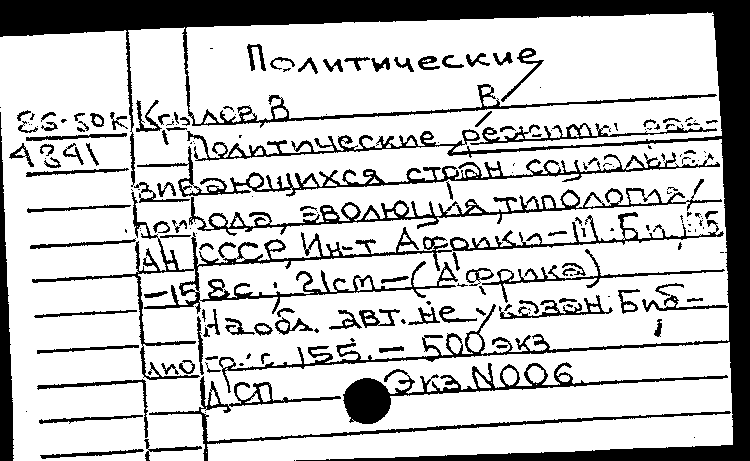 Политические
В
86-50к Крылов, В
4841 Политические режимы раз-
вивающихся стран: социальная
природа, эволюция, типология /
АН СССР, Ин-т Африки – М.: Б.и.,
– 158с.; 21см. – (Африка)
На обл. авт. не указан. Биб-
лиогр.: с. 155. – 500 экз
ДСП. Экз. N006.